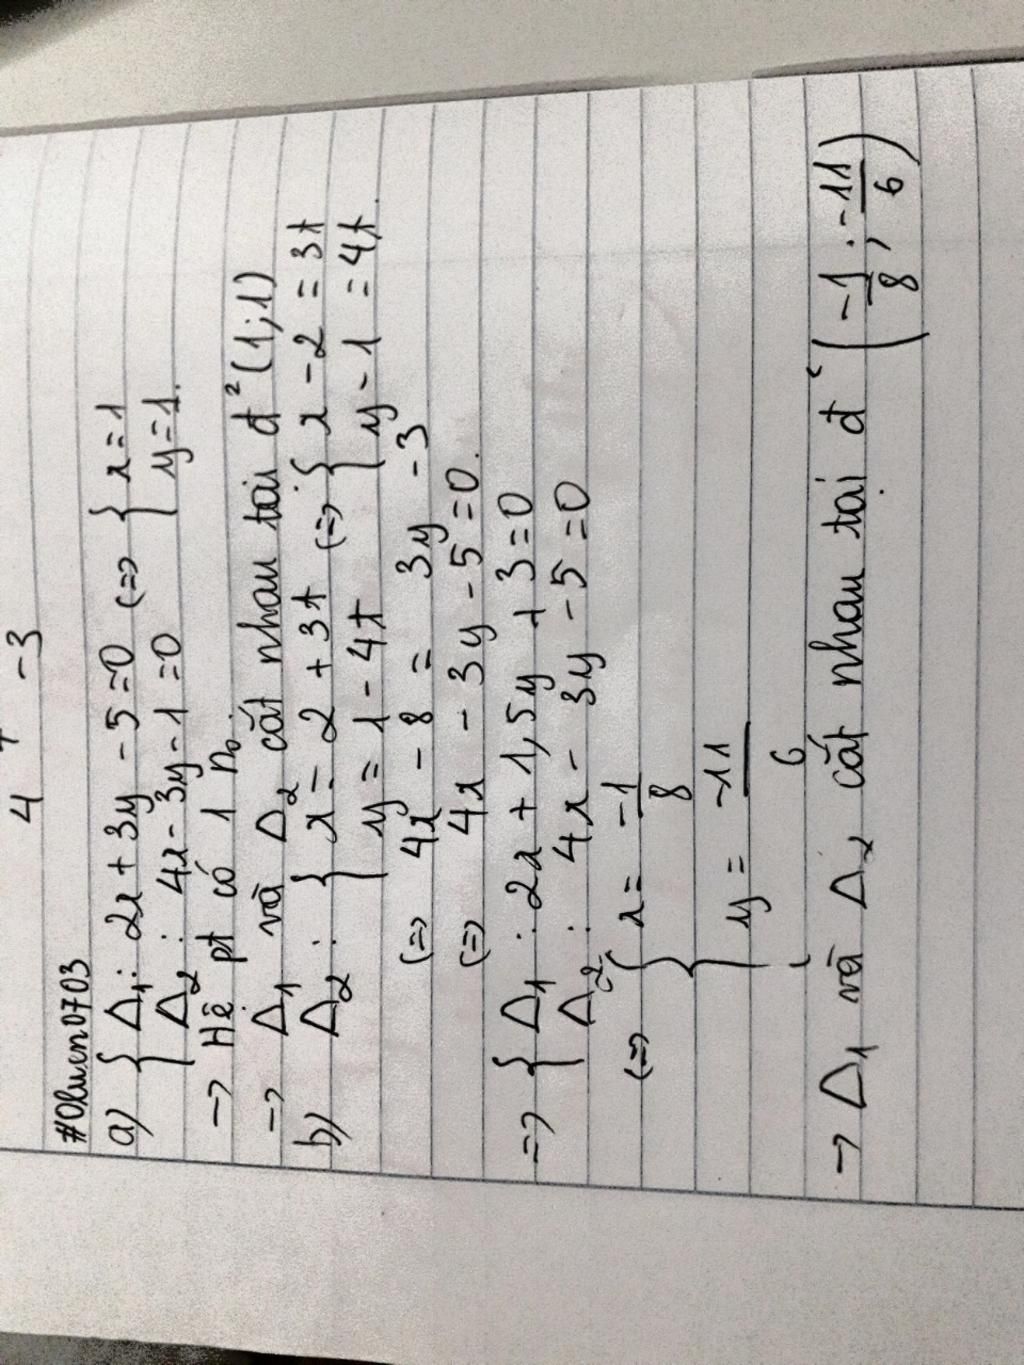 4 -3
#Olwcn0703
a) { Δ₁: 2x + 3y - 5 = 0 (=> { x = 1
Δ₂: 4x - 3y - 1 = 0 y = 1.
-> Hệ pt có 1 n₀.
-> Δ₁ và Δ₂ cắt nhau tại đ² (1;1)
b) Δ₂: { x = 2 + 3t (=> { x - 2 = 3t
y = 1 - 4t y - 1 = 4t.
(=> 4x - 8 = 3y - 3
(=> 4x - 3y - 5 = 0.
=> { Δ₁: 2x + 1,5y + 3 = 0
Δ₂: 4x - 3y - 5 = 0
(=> { x = -1/8
y = -11/6
-> Δ₁ và Δ₂ cắt nhau tại đ² (-1/8 ; -11/6)